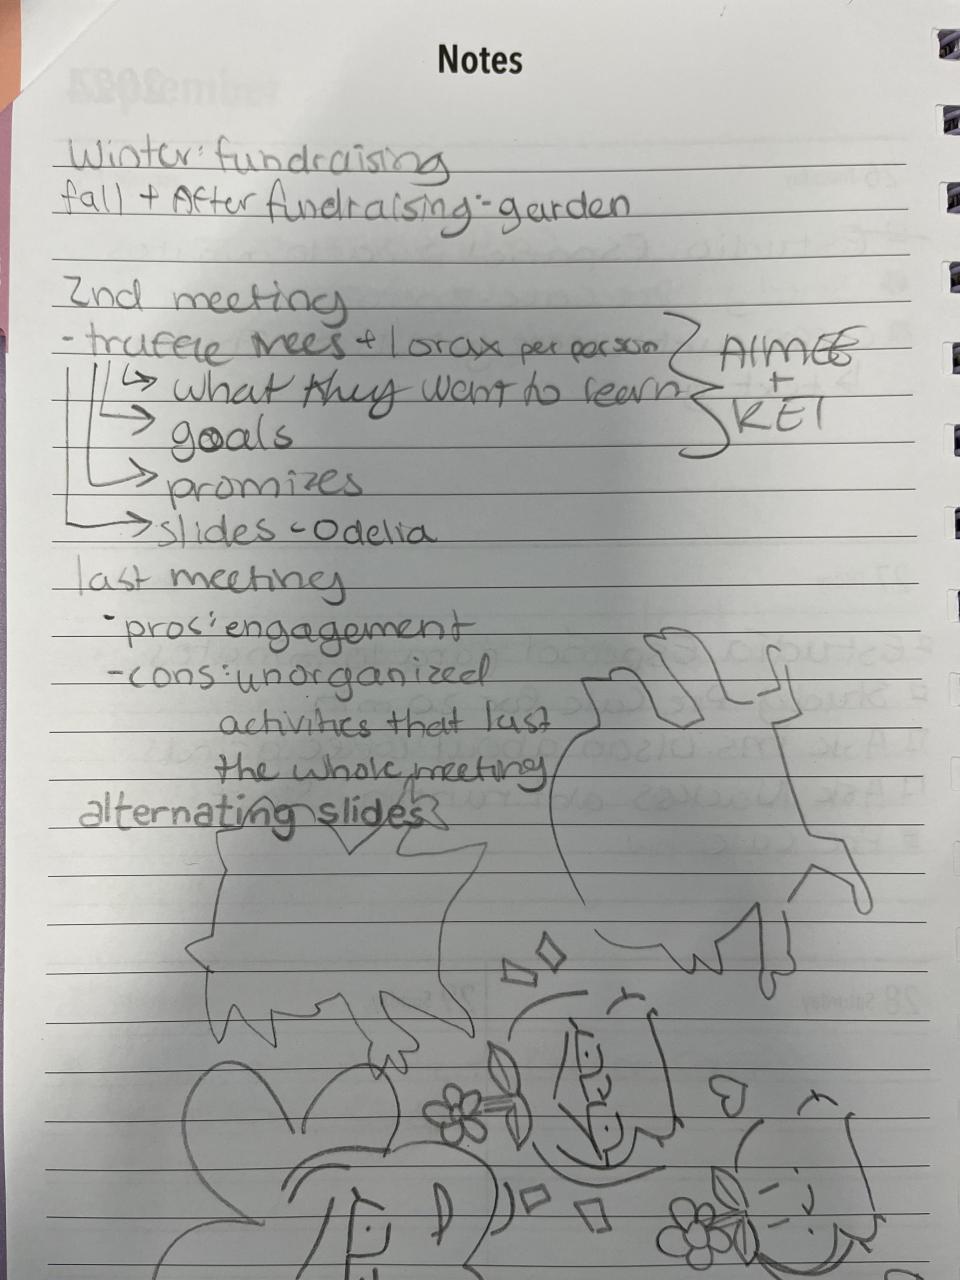 Notes
Winter: fundraising
fall + After fundraising - garden
2nd meeting
- truffle trees + lorax per person
AIMEE
+
KEI
what they want to learn
goals
promizes
slides - Odelia
last meeting
- pros: engagement
- cons: unorganized
activities that last
the whole meeting
alternating slides?